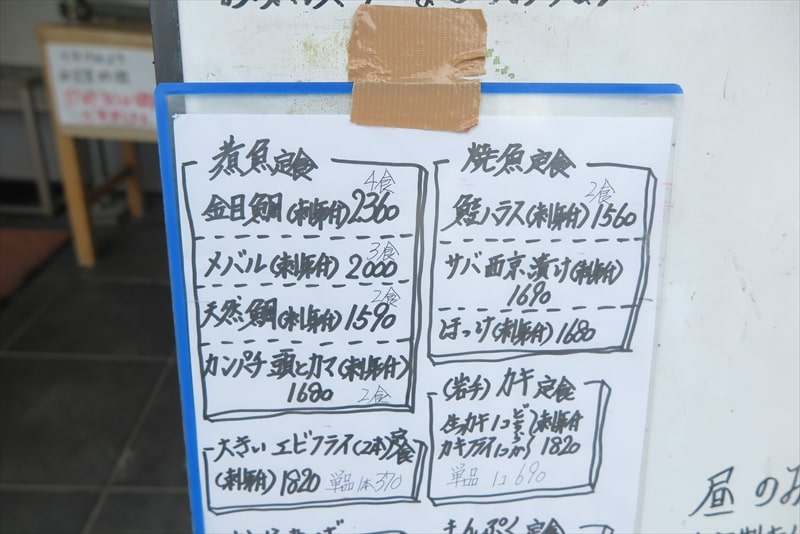 煮魚定食
4食
金目鯛(刺身付)2360
3食
メバル(刺身付)2000
2食
天然鯛(刺身付)1590
カンパチ頭とカマ(刺身付)
1680
2食
大きいエビフライ(2本)定食
(刺身付)1820 単品1本370
焼魚定食
2食
鮭ハラス(刺身付)1560
サバ西京漬け(刺身付)
1690
ほっけ(刺身付)1680
(岩手)カキ定食
生カキ1コ
カキフライ1コ
どちらか
刺身付
1820
単品 1コ690
まんぷく定食
昼のお